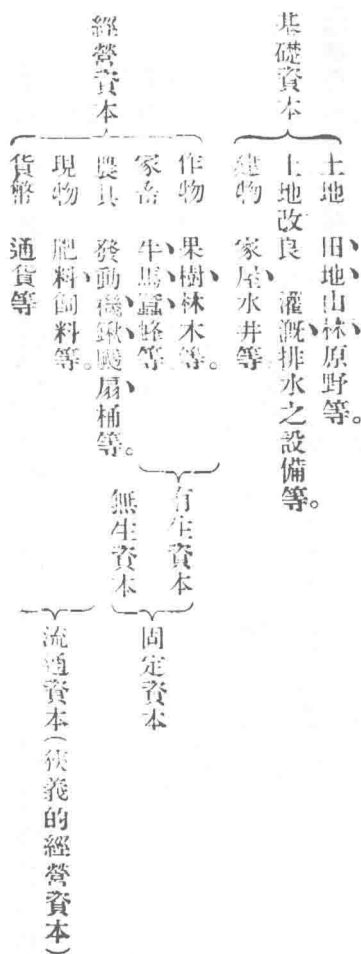 基礎資本
土地 旧地、山林、原野等。
土地改良 灌漑、排水之設備等。
建物 家屋、水井等。
經營資本
作物 果樹、林木等。
家畜 牛、馬、蠶、蜂等。
農具 發動機、鍬、颺扇、桶等。
現物 肥料、飼料等。
貨幣 通貨等
有生資本
無生資本
固定資本
流通資本(狹義的經營資本)